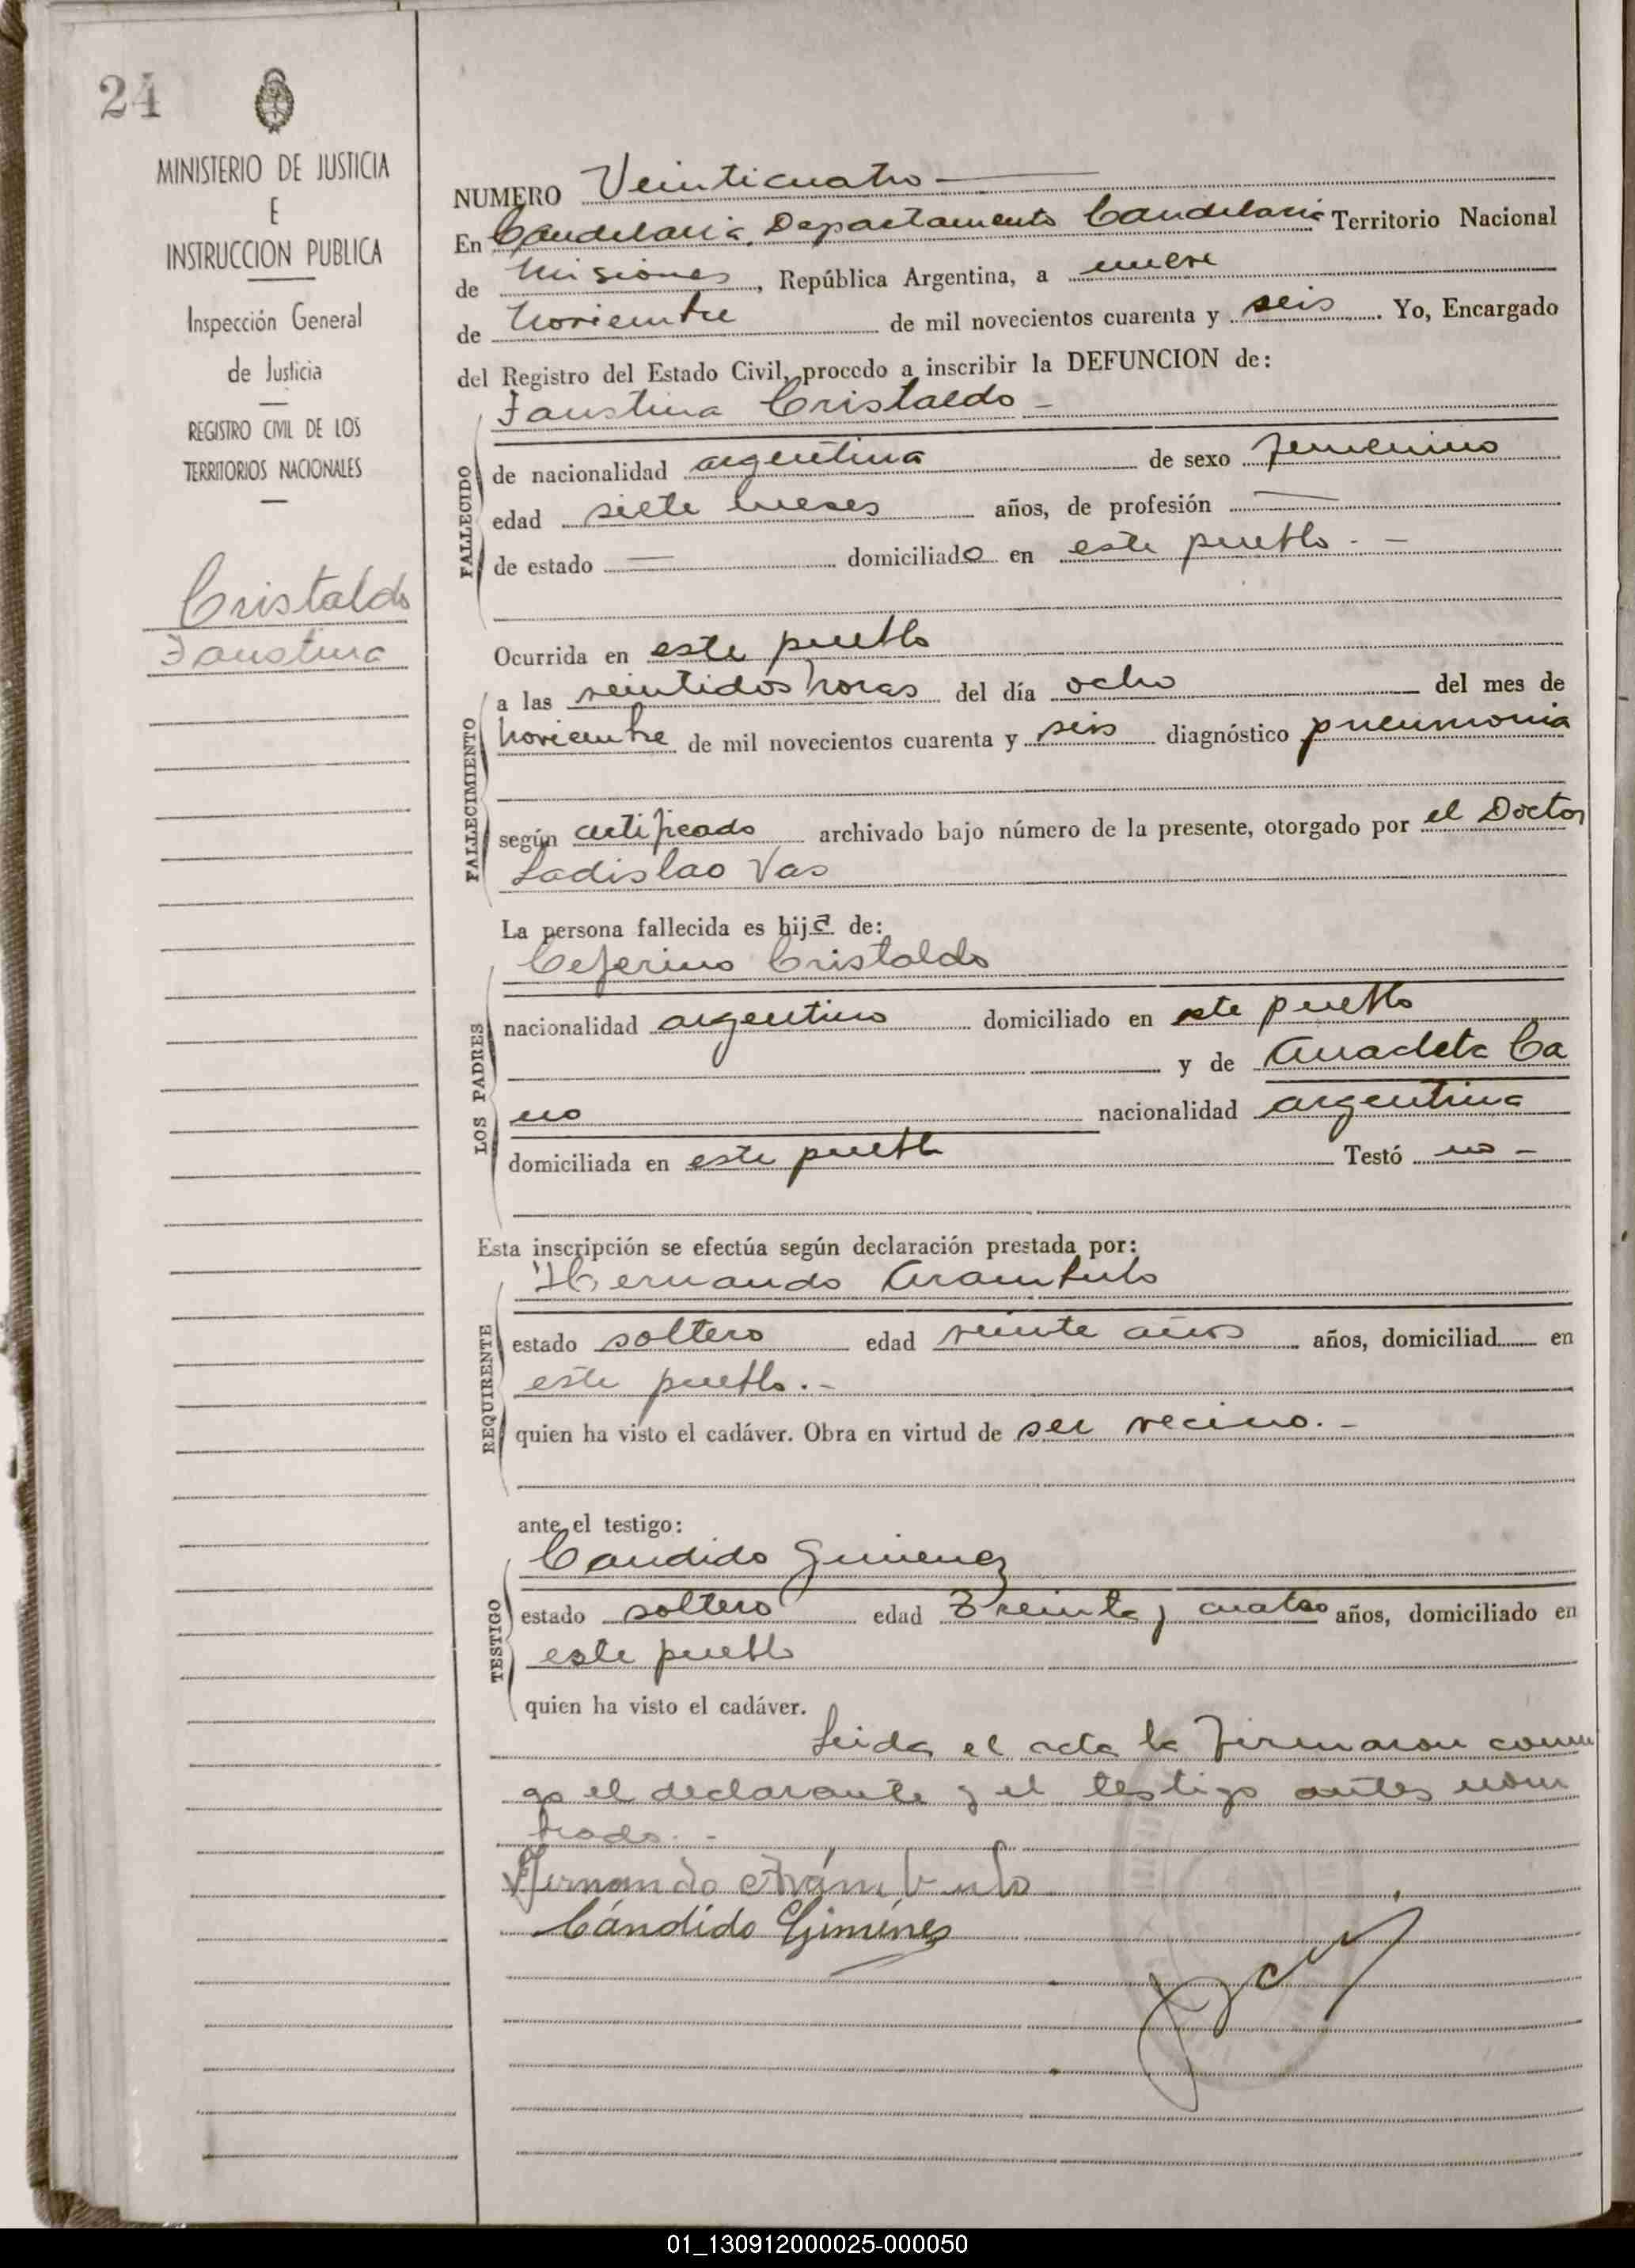 24
MINISTERIO DE JUSTICIA
E
INSTRUCCION PUBLICA
Inspección General
de Justicia
REGISTRO CIVIL DE LOS
TERRITORIOS NACIONALES
Cristaldo
Faustina
NUMERO Veinticuatro
En Candelaria, Departamento Candelaria Territorio Nacional
de Misiones, República Argentina, a nueve
de noviembre de mil novecientos cuarenta y seis. Yo, Encargado
del Registro del Estado Civil, procedo a inscribir la DEFUNCION de:
Faustina Cristaldo -
FALLECIDO
de nacionalidad argentina de sexo femenino
edad siete meses años, de profesión —
de estado — domiciliado en este pueblo. -
Ocurrida en este pueblo
FALLECIMIENTO
a las veintidos horas del día ocho del mes de
noviembre de mil novecientos cuarenta y seis diagnóstico pneumonia
según certificado archivado bajo número de la presente, otorgado por el Doctor
Ladislao Vas
La persona fallecida es hija de:
LOS PADRES
Ceferino Cristaldo
nacionalidad argentino domiciliado en este pueblo
y de Anacleta Ca
no nacionalidad argentina
domiciliada en este pueblo Testó no -
Esta inscripción se efectúa según declaración prestada por:
REQUIRENTE
Hernando Arambulo
estado soltero edad veinte años años, domiciliad en
este pueblo. -
quien ha visto el cadáver. Obra en virtud de ser vecino. -
ante el testigo:
TESTIGO
Candido Gimenez
estado soltero edad Treinta y cuatro años, domiciliado en
este pueblo
quien ha visto el cadáver.
Leida el acta la firmaron conmi
go el declarante y el testigo antes nom
brado. -
Hernando Arámbulo
Cándido Giménez
01_130912000025-000050